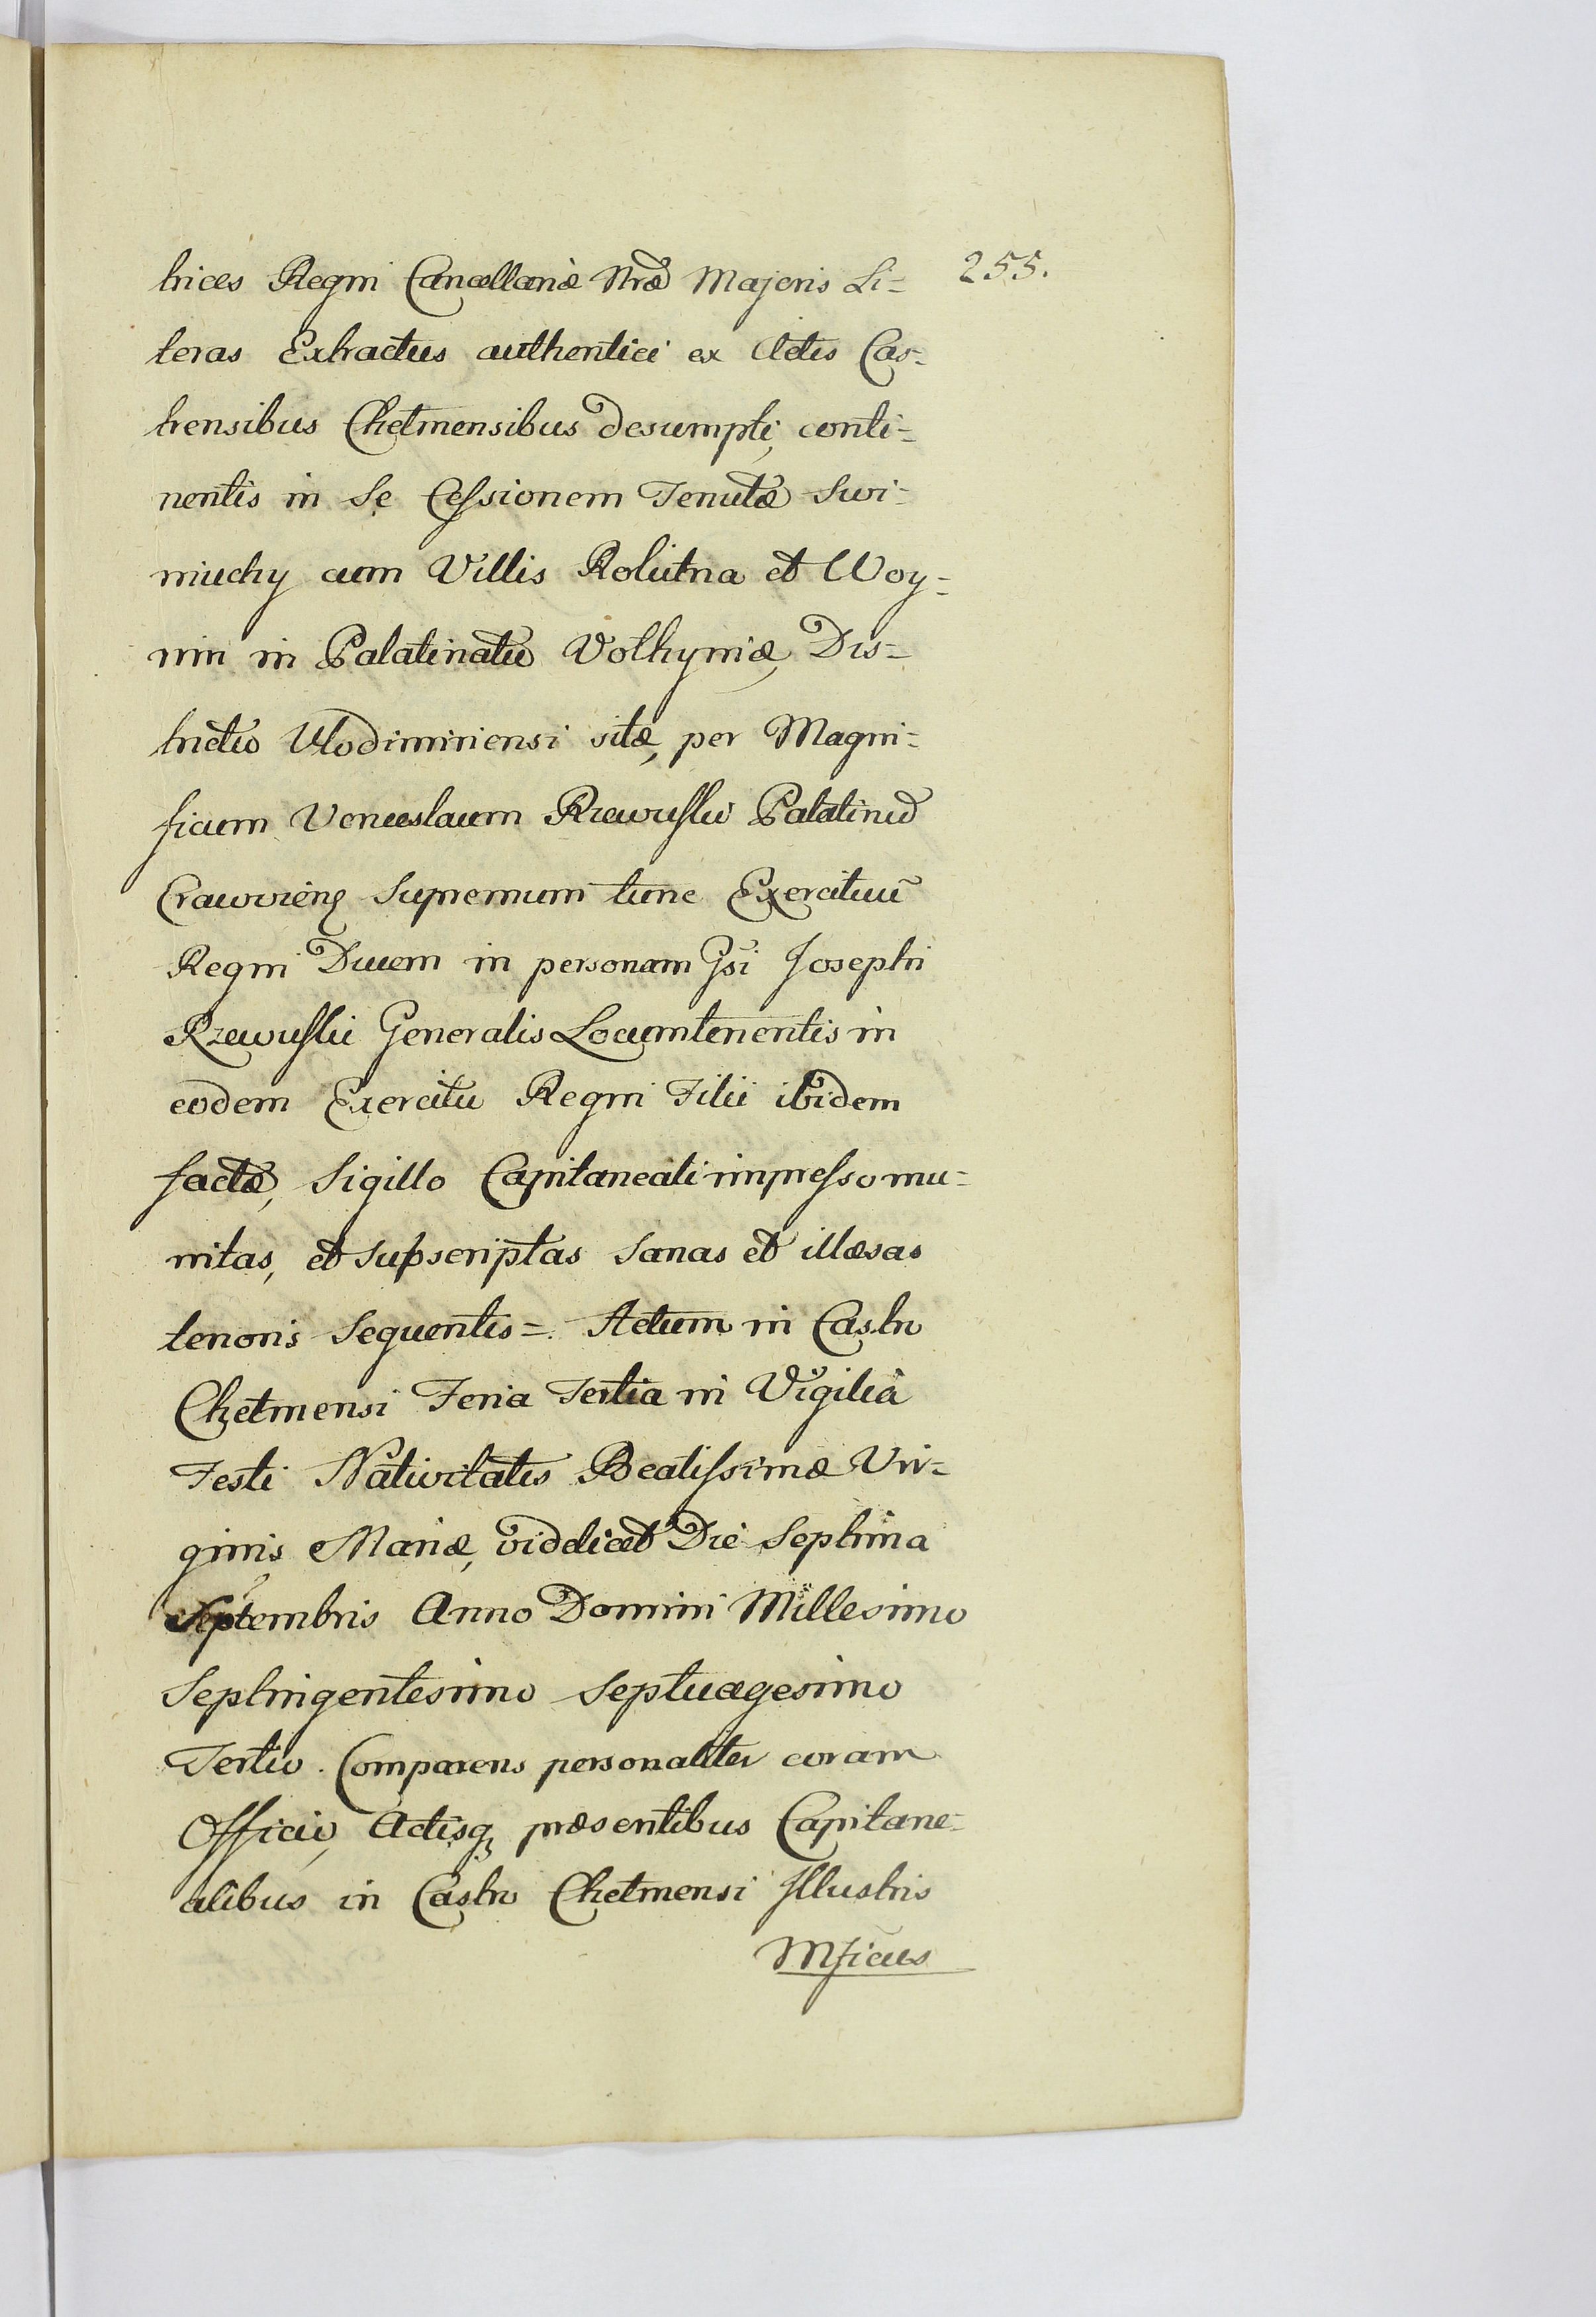 255.
trices Regni Cancellariæ Nræ Majoris Li=
teras Extractus authentici ex Actis Cas=
trensibus Chełmensibus desumpti, conti=
nentis in Se Cessionem Tenutæ Swi=
niuchy cum Villis Kolutna et Woy=
nin in Palatinatu Volhyniæ, Dis=
trictu Vlodimiriensi sitæ, per Magni=
ficum Venceslaum Rzewuski Palatinũ
Cracovieñ Supremum tunc Exercituũ
Regni Ducem in personam Gsi Josephi
Rzewuski Generalis Locumtenentis in
eodem Exercitu Regni Filii ibidem
factæ, Sigillo Capitaneali impresso mu=
nitas, et Subscriptas Sanas et illæsas
tenoris Sequentis = Actum in Castro
Chełmensi Feria Tertia in Vigilia
Festi Nativitatis Beatissimæ Vir=
ginis Mariæ, viddicet Die Septima
Septembris Anno Domini Millesimo
Septingentesimo Septuagesimo
Tertio. Comparens personaliter coram
Officio, Actisq præsentibus Capitane=
alibus in Castro Chełmensi Illustris
Mficus